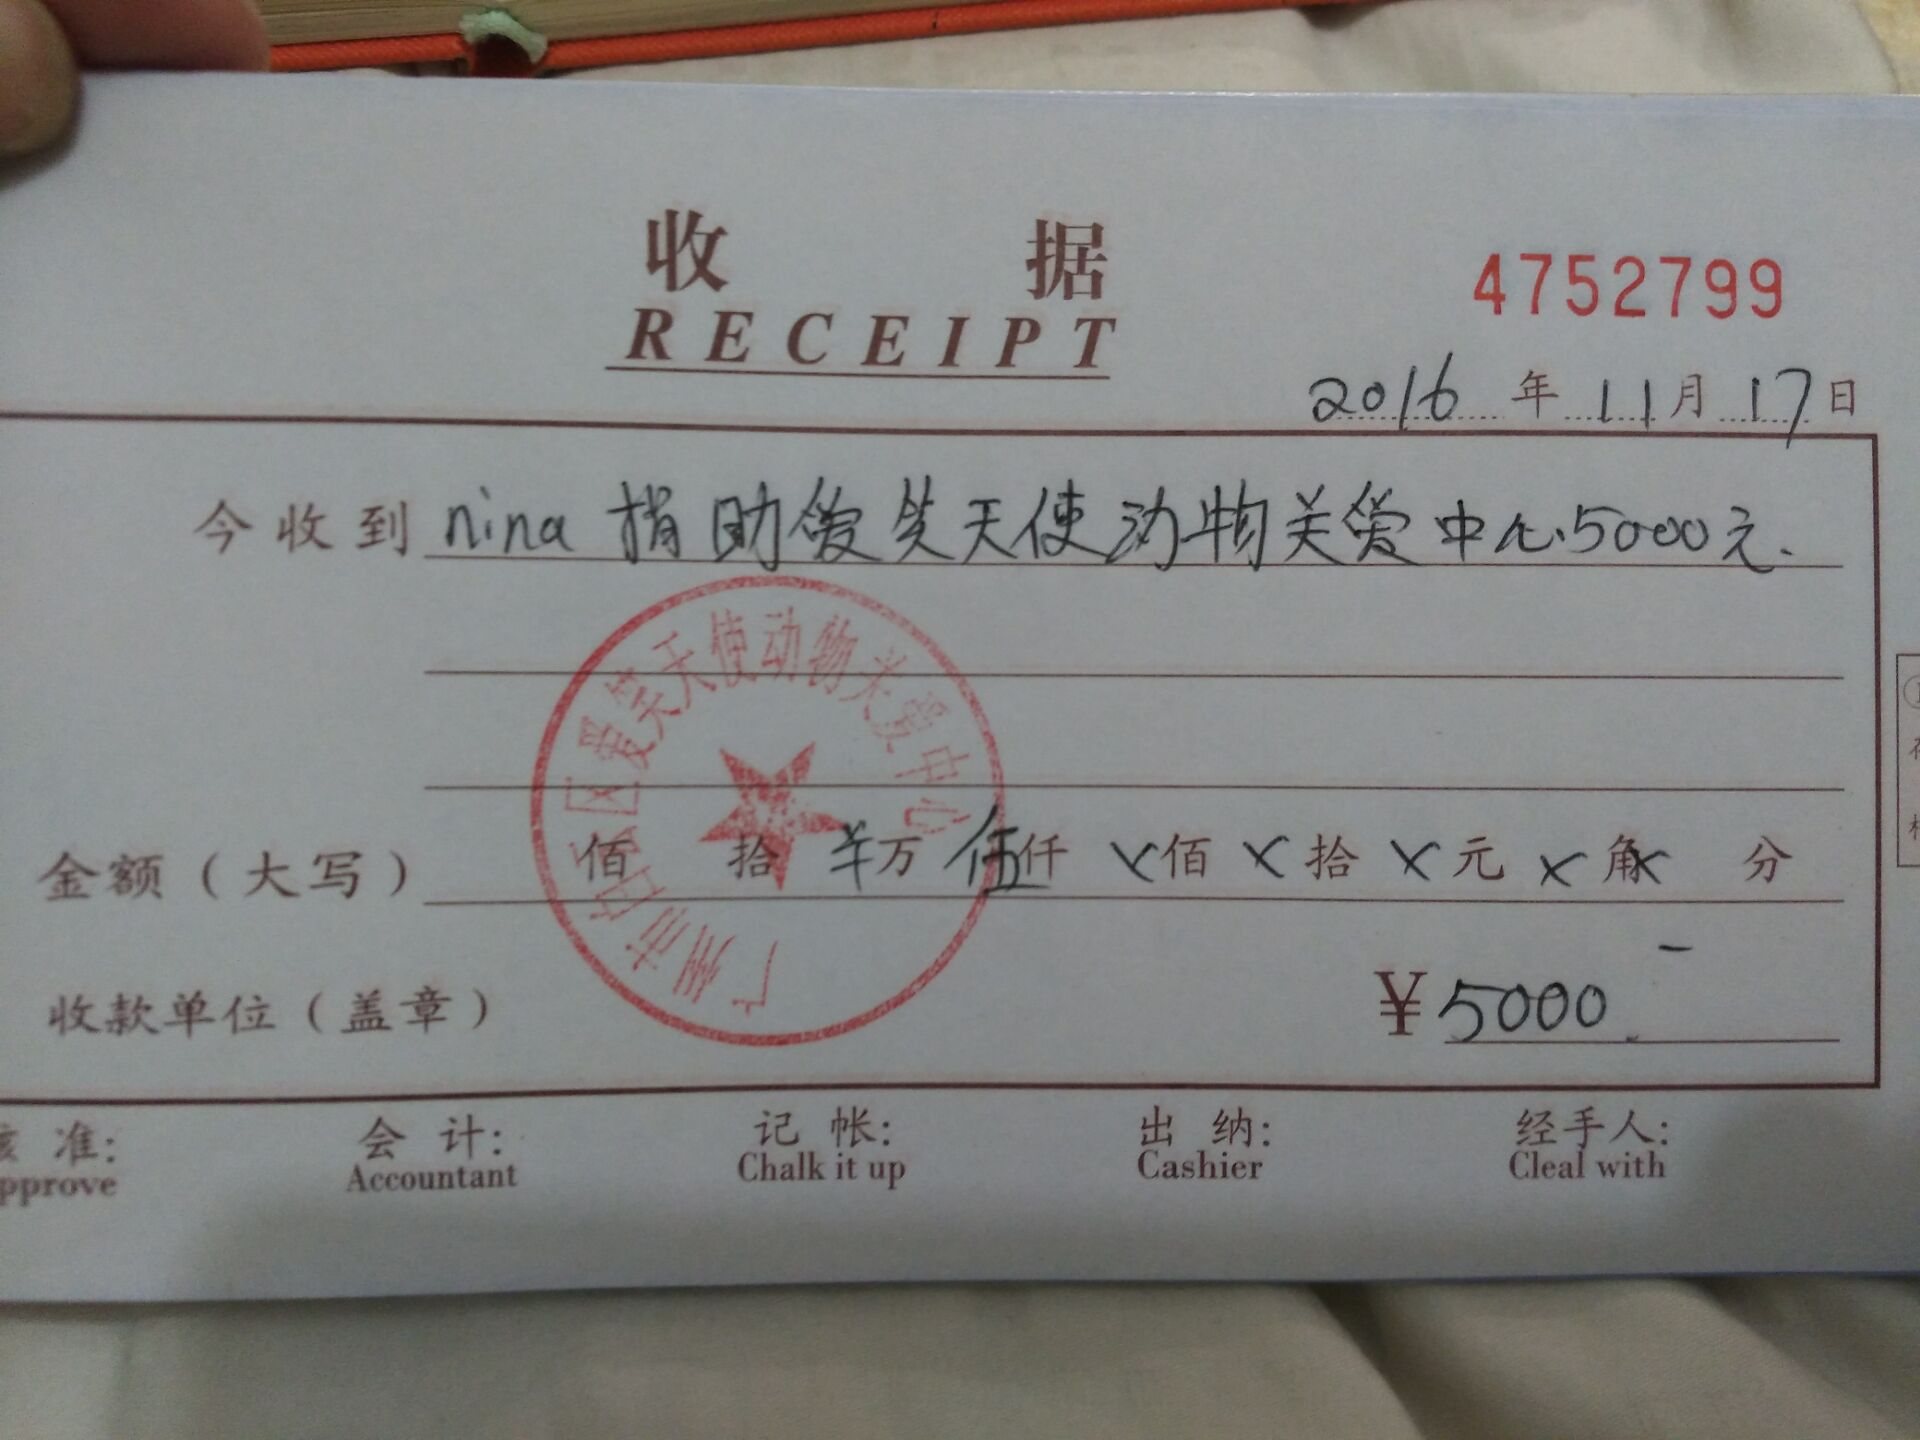 收 据
RECEIPT
4752799
2016 年 11 月 17 日
今收到 nina 捐助爱笑天使动物关爱中心5000元.
广州市白云区爱笑天使动物关爱中心
金额(大写) 佰 拾 ¥万 伍仟 ×佰 ×拾 ×元 ×角 ×分
收款单位(盖章) ¥5000.-
核 准: 会 计: 记 帐: 出 纳: 经手人:
pprove Accountant Chalk it up Cashier Cleal with